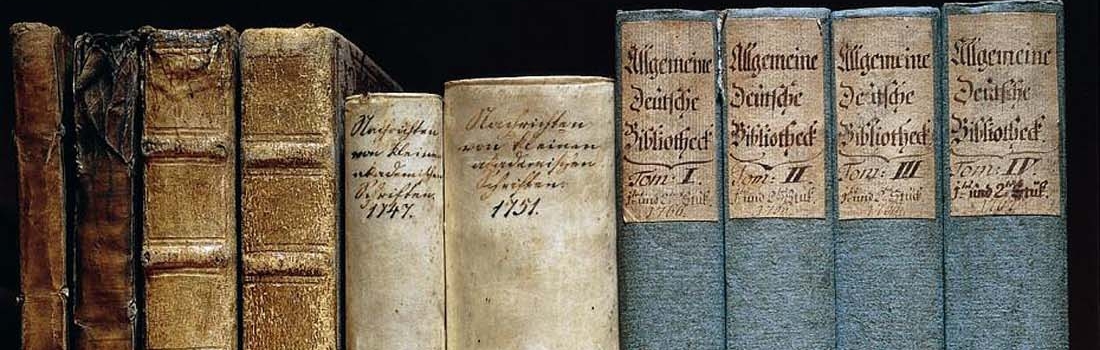 Nachrichten
von kleinen
akademischen
Schriften.
1747.
Nachrichten
von kleinen
akademischen
Schriften.
1751.
Allgemeine
Deutsche
Bibliotheck
Tom: I.
1. und 2tes Stük.
1766.
Allgemeine
Deutsche
Bibliotheck
Tom: II
1. und 2tes Stük
Allgemeine
Deutsche
Bibliotheck
Tom: III
1. und 2tes Stük
Allgemeine
Deutsche
Bibliotheck
Tom: IV
1tes und 2tes Stük.